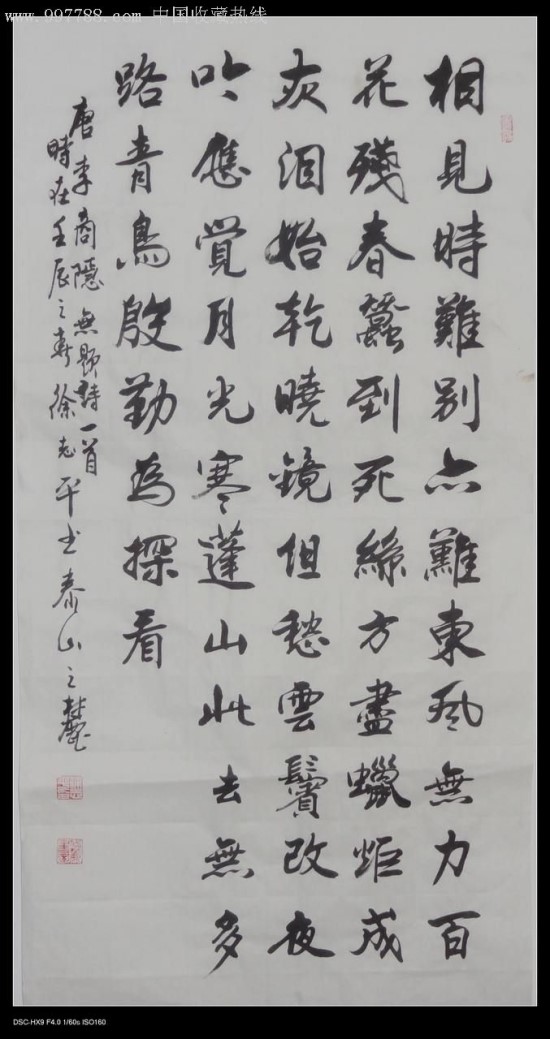 www.997788.com 中国收藏热线
相見時難別亦難東風無力百
花殘春蠶到死絲方盡蠟炬成
灰泪始乾曉鏡但愁雲鬢改夜
吟應覺月光寒蓬山此去無多
路青鳥殷勤為探看
唐李商隱無題詩一首
時在壬辰之春徐志平书泰山之麓
DSC-HX9 F4.0 1/60s ISO160